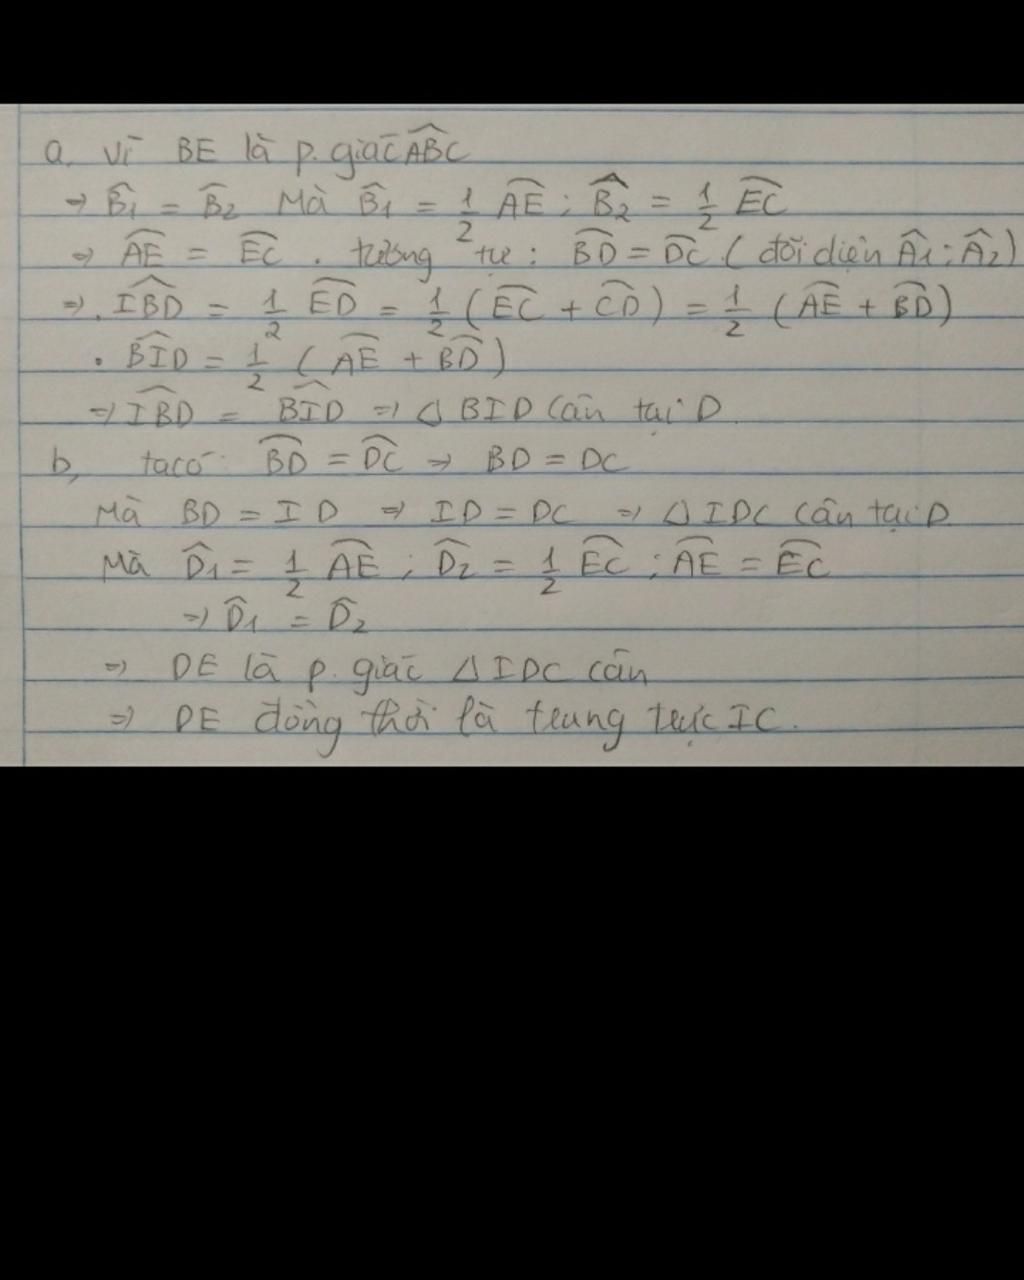 a. Vì BE là p. giác \widehat{ABC}
⇒ \widehat{B}₁ = \widehat{B}₂ Mà \widehat{B}₁ = 1/2 \overset{⌢}{AE} ; \widehat{B}₂ = 1/2 \overset{⌢}{EC}
⇒ \overset{⌢}{AE} = \overset{⌢}{EC} . tương tự : \overset{⌢}{BD} = \overset{⌢}{DC} . ( đối diện \widehat{A}₁ ; \widehat{A}₂ )
⇒ . \widehat{IBD} = 1/2 \overset{⌢}{ED} = 1/2 ( \overset{⌢}{EC} + \overset{⌢}{CD} ) = 1/2 ( \overset{⌢}{AE} + \overset{⌢}{BD} )
• \widehat{BID} = 1/2 ( \overset{⌢}{AE} + \overset{⌢}{BD} )
⇒ \widehat{IBD} = \widehat{BID} ⇒ △ BID cân tại D
b, ta có \overset{⌢}{BD} = \overset{⌢}{DC} ⇒ BD = DC
Mà BD = ID ⇒ ID = DC ⇒ △ IDC cân tại D
Mà \widehat{D}₁ = 1/2 \overset{⌢}{AE} ; \widehat{D}₂ = 1/2 \overset{⌢}{EC} ; \overset{⌢}{AE} = \overset{⌢}{EC}
⇒ \widehat{D}₁ = \widehat{D}₂
⇒ DE là p. giác △ IDC cân
⇒ DE đồng thời là trung trực IC.